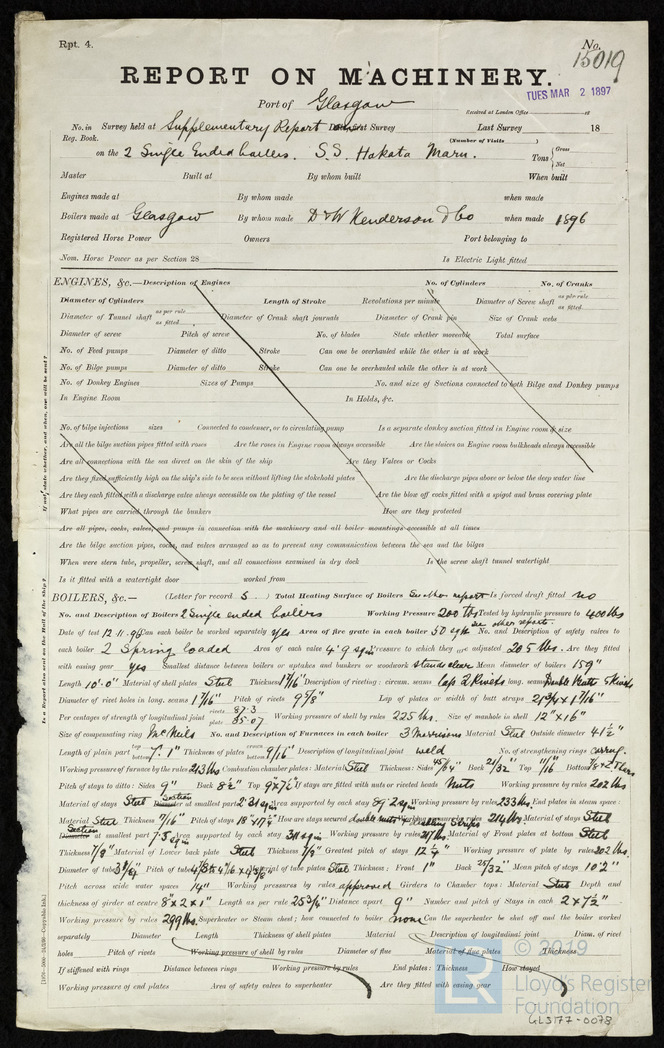 Rpt. 4.
No. 15019
REPORT ON MACHINERY.
TUES MAR 2 1897
Port of Glasgow
Received at London Office 18
No. in Survey held at Supplementary Report Date, first Survey Last Survey 18
Reg. Book. (Number of Visits )
on the 2 Single Ended boilers. S.S. Hakata Maru. Tons { Gross Net
Master Built at By whom built When built
Engines made at By whom made when made
Boilers made at Glasgow By whom made D & W Henderson & Co when made 1896
Registered Horse Power Owners Port belonging to
Nom. Horse Power as per Section 28 Is Electric Light fitted
ENGINES, &c.—Description of Engines No. of Cylinders No. of Cranks
Diameter of Cylinders Length of Stroke Revolutions per minute Diameter of Screw shaft as per rule as fitted
Diameter of Tunnel shaft as per rule as fitted Diameter of Crank shaft journals Diameter of Crank pin Size of Crank webs
Diameter of screw Pitch of screw No. of blades State whether moveable Total surface
No. of Feed pumps Diameter of ditto Stroke Can one be overhauled while the other is at work
No. of Bilge pumps Diameter of ditto Stroke Can one be overhauled while the other is at work
No. of Donkey Engines Sizes of Pumps No. and size of Suctions connected to both Bilge and Donkey pumps
In Engine Room In Holds, &c.
No. of bilge injections sizes Connected to condenser, or to circulating pump Is a separate donkey suction fitted in Engine room & size
Are all the bilge suction pipes fitted with roses Are the roses in Engine room always accessible Are the sluices on Engine room bulkheads always accessible
Are all connections with the sea direct on the skin of the ship Are they Valves or Cocks
Are they fixed sufficiently high on the ship's side to be seen without lifting the stokehold plates Are the discharge pipes above or below the deep water line
Are they each fitted with a discharge valve always accessible on the plating of the vessel Are the blow off cocks fitted with a spigot and brass covering plate
What pipes are carried through the bunkers How are they protected
Are all pipes, cocks, valves, and pumps in connection with the machinery and all boiler mountings accessible at all times
Are the bilge suction pipes, cocks, and valves arranged so as to prevent any communication between the sea and the bilges
When were stern tube, propeller, screw shaft, and all connections examined in dry dock Is the screw shaft tunnel watertight
Is it fitted with a watertight door worked from
BOILERS, &c.— (Letter for record S ) Total Heating Surface of Boilers See other report Is forced draft fitted no
No. and Description of Boilers 2 Single ended boilers Working Pressure 200 lbs Tested by hydraulic pressure to 400 lbs
Date of test 12.11.96 Can each boiler be worked separately yes Area of fire grate in each boiler 50 sq ft see other report. No. and Description of safety valves to
each boiler 2 Spring loaded Area of each valve 4.9 sq in Pressure to which they are adjusted 205 lbs. Are they fitted
with easing gear yes Smallest distance between boilers or uptakes and bunkers or woodwork stands clear Mean diameter of boilers 159"
Length 10'.0" Material of shell plates Steel Thickness 1 7/16" Description of riveting: circum. seams lap 2 Rivets long. seams Double butts 5 Rivets
Diameter of rivet holes in long. seams 1 7/16" Pitch of rivets 9 7/8" Lap of plates or width of butt straps 21 3/4 x 1 7/16"
Per centages of strength of longitudinal joint rivets 87.3 plate 85.07 Working pressure of shell by rules 225 lbs. Size of manhole in shell 12" x 16"
Size of compensating ring McNeils No. and Description of Furnaces in each boiler 3 Morrisons Material Steel Outside diameter 41 1/2"
Length of plain part top bottom 7'.1" Thickness of plates crown bottom 9/16" Description of longitudinal joint weld No. of strengthening rings corrug.
Working pressure of furnace by the rules 213 lbs Combustion chamber plates: Material Steel Thickness: Sides 45/64" Back 21/32" Top 11/16" Bottom
Pitch of stays to ditto: Sides 9" Back 8 1/2" Top 9" x 7 1/2" If stays are fitted with nuts or riveted heads Nuts Working pressure by rules 202 lbs
Material of stays Steel Section at smallest part 2.31 sq in Area supported by each stay 89.2 sq in Working pressure by rules 233 lbs. End plates in steam space:
Material Steel Thickness 7/16" Pitch of stays 18" x 17 1/2" How are stays secured double nuts + Working pressure by rules 214 lbs Material of stays Steel
Section at smallest part 7.5 sq in Area supported by each stay 311 sq in Working pressure by rules 217 lbs Material of Front plates at bottom Steel
Thickness 7/8" Material of Lower back plate Steel Thickness 7/8" Greatest pitch of stays 12 1/4" Working pressure of plate by rules 202 lbs.
Diameter of tubes Pitch of tubes Material of tube plates Steel Thickness: Front 1" Back 25/32" Mean pitch of stays 10'2"
Pitch across wide water spaces 14" Working pressures by rules approved Girders to Chamber tops: Material Steel Depth and
thickness of girder at centre 8" x 2 x 1" Length as per rule 25 3/4" Distance apart 9" Number and pitch of Stays in each 2 x 7 1/2"
Working pressure by rules 299 lbs. Superheater or Steam chest; how connected to boiler none Can the superheater be shut off and the boiler worked
separately Diameter Length Thickness of shell plates Material Description of longitudinal joint Diam. of rivet
holes Pitch of rivets Working pressure of shell by rules Diameter of flue Material of flue plates Thickness
If stiffened with rings Distance between rings Working pressure by rules End plates: Thickness How stayed
Working pressure of end plates Area of safety valves to superheater Are they fitted with easing gear
© 2019
LR
Lloyd's Register
Foundation
GLS177-0078
Is a Report also sent on the Hull of the Ship?
If not, state whether, and when, one will be sent?